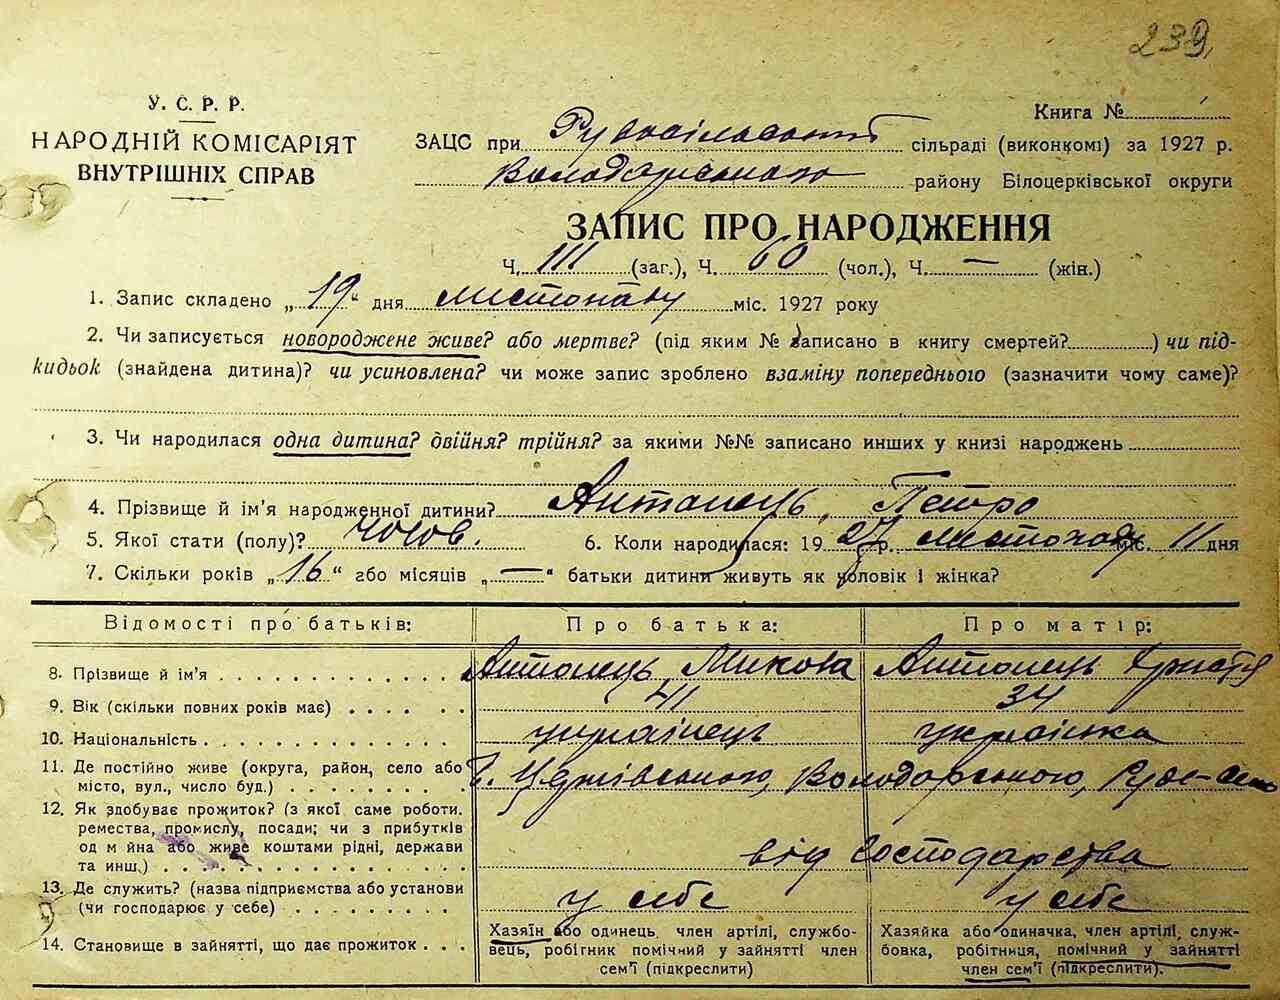 239
У. С. Р. Р.
НАРОДНІЙ КОМІСАРІЯТ
ВНУТРІШНІХ СПРАВ
Книга №
ЗАЦС при сільраді (виконкомі) за 1927 р.
Володарського району Білоцерківської округи
ЗАПИС ПРО НАРОДЖЕННЯ
Ч. 111 (заг.), Ч. 60 (чол.), Ч. — (жін.)
1. Запис складено „19“ дня листопаду міс. 1927 року
2. Чи записується новороджене живе? або мертве? (під яким № записано в книгу смертей? ) чи під-
кидьок (знайдена дитина)? чи усиновлена? чи може запис зроблено взаміну попереднього (зазначити чому саме)?
3. Чи народилася одна дитина? двійня? трійня? за якими №№ записано инших у книзі народжень
4. Прізвище й ім'я народженної дитини? Антонець, Петро
5. Якої статі (полу)? чолов. 6. Коли народилася: 1927 р. листопаду міс. 11 дня
7. Скільки років „16“ або місяців „—“ батьки дитини живуть як чоловік і жінка?
Відомості про батьків: Про батька: Про матір:
8. Прізвище й ім'я Антонець Микола Антонець
9. Вік (скільки повних років має) 41 34
10. Національність українець українка
11. Де постійно живе (округа, район, село або
місто, вул., число буд.) Володарського,
12. Як здобуває прожиток? (з якої саме роботи.
ремества, промислу, посади; чи з прибутків
од м йна або живе коштами рідні, держави
та инш.) від господарства
13. Де служить? (назва підприємства або установи
(чи господарює у себе) у себе у себе
14. Становище в зайнятті, що дає прожиток
Хазяїн або одинець, член артілі, службо-
вець, робігник помічний у зайнятті член
сем'ї (підкреслити)
Хазяйка або одиначка, член артілі, служ-
бовка, робітниця, помічний у зайнятті
член сем'ї (підкреслити).